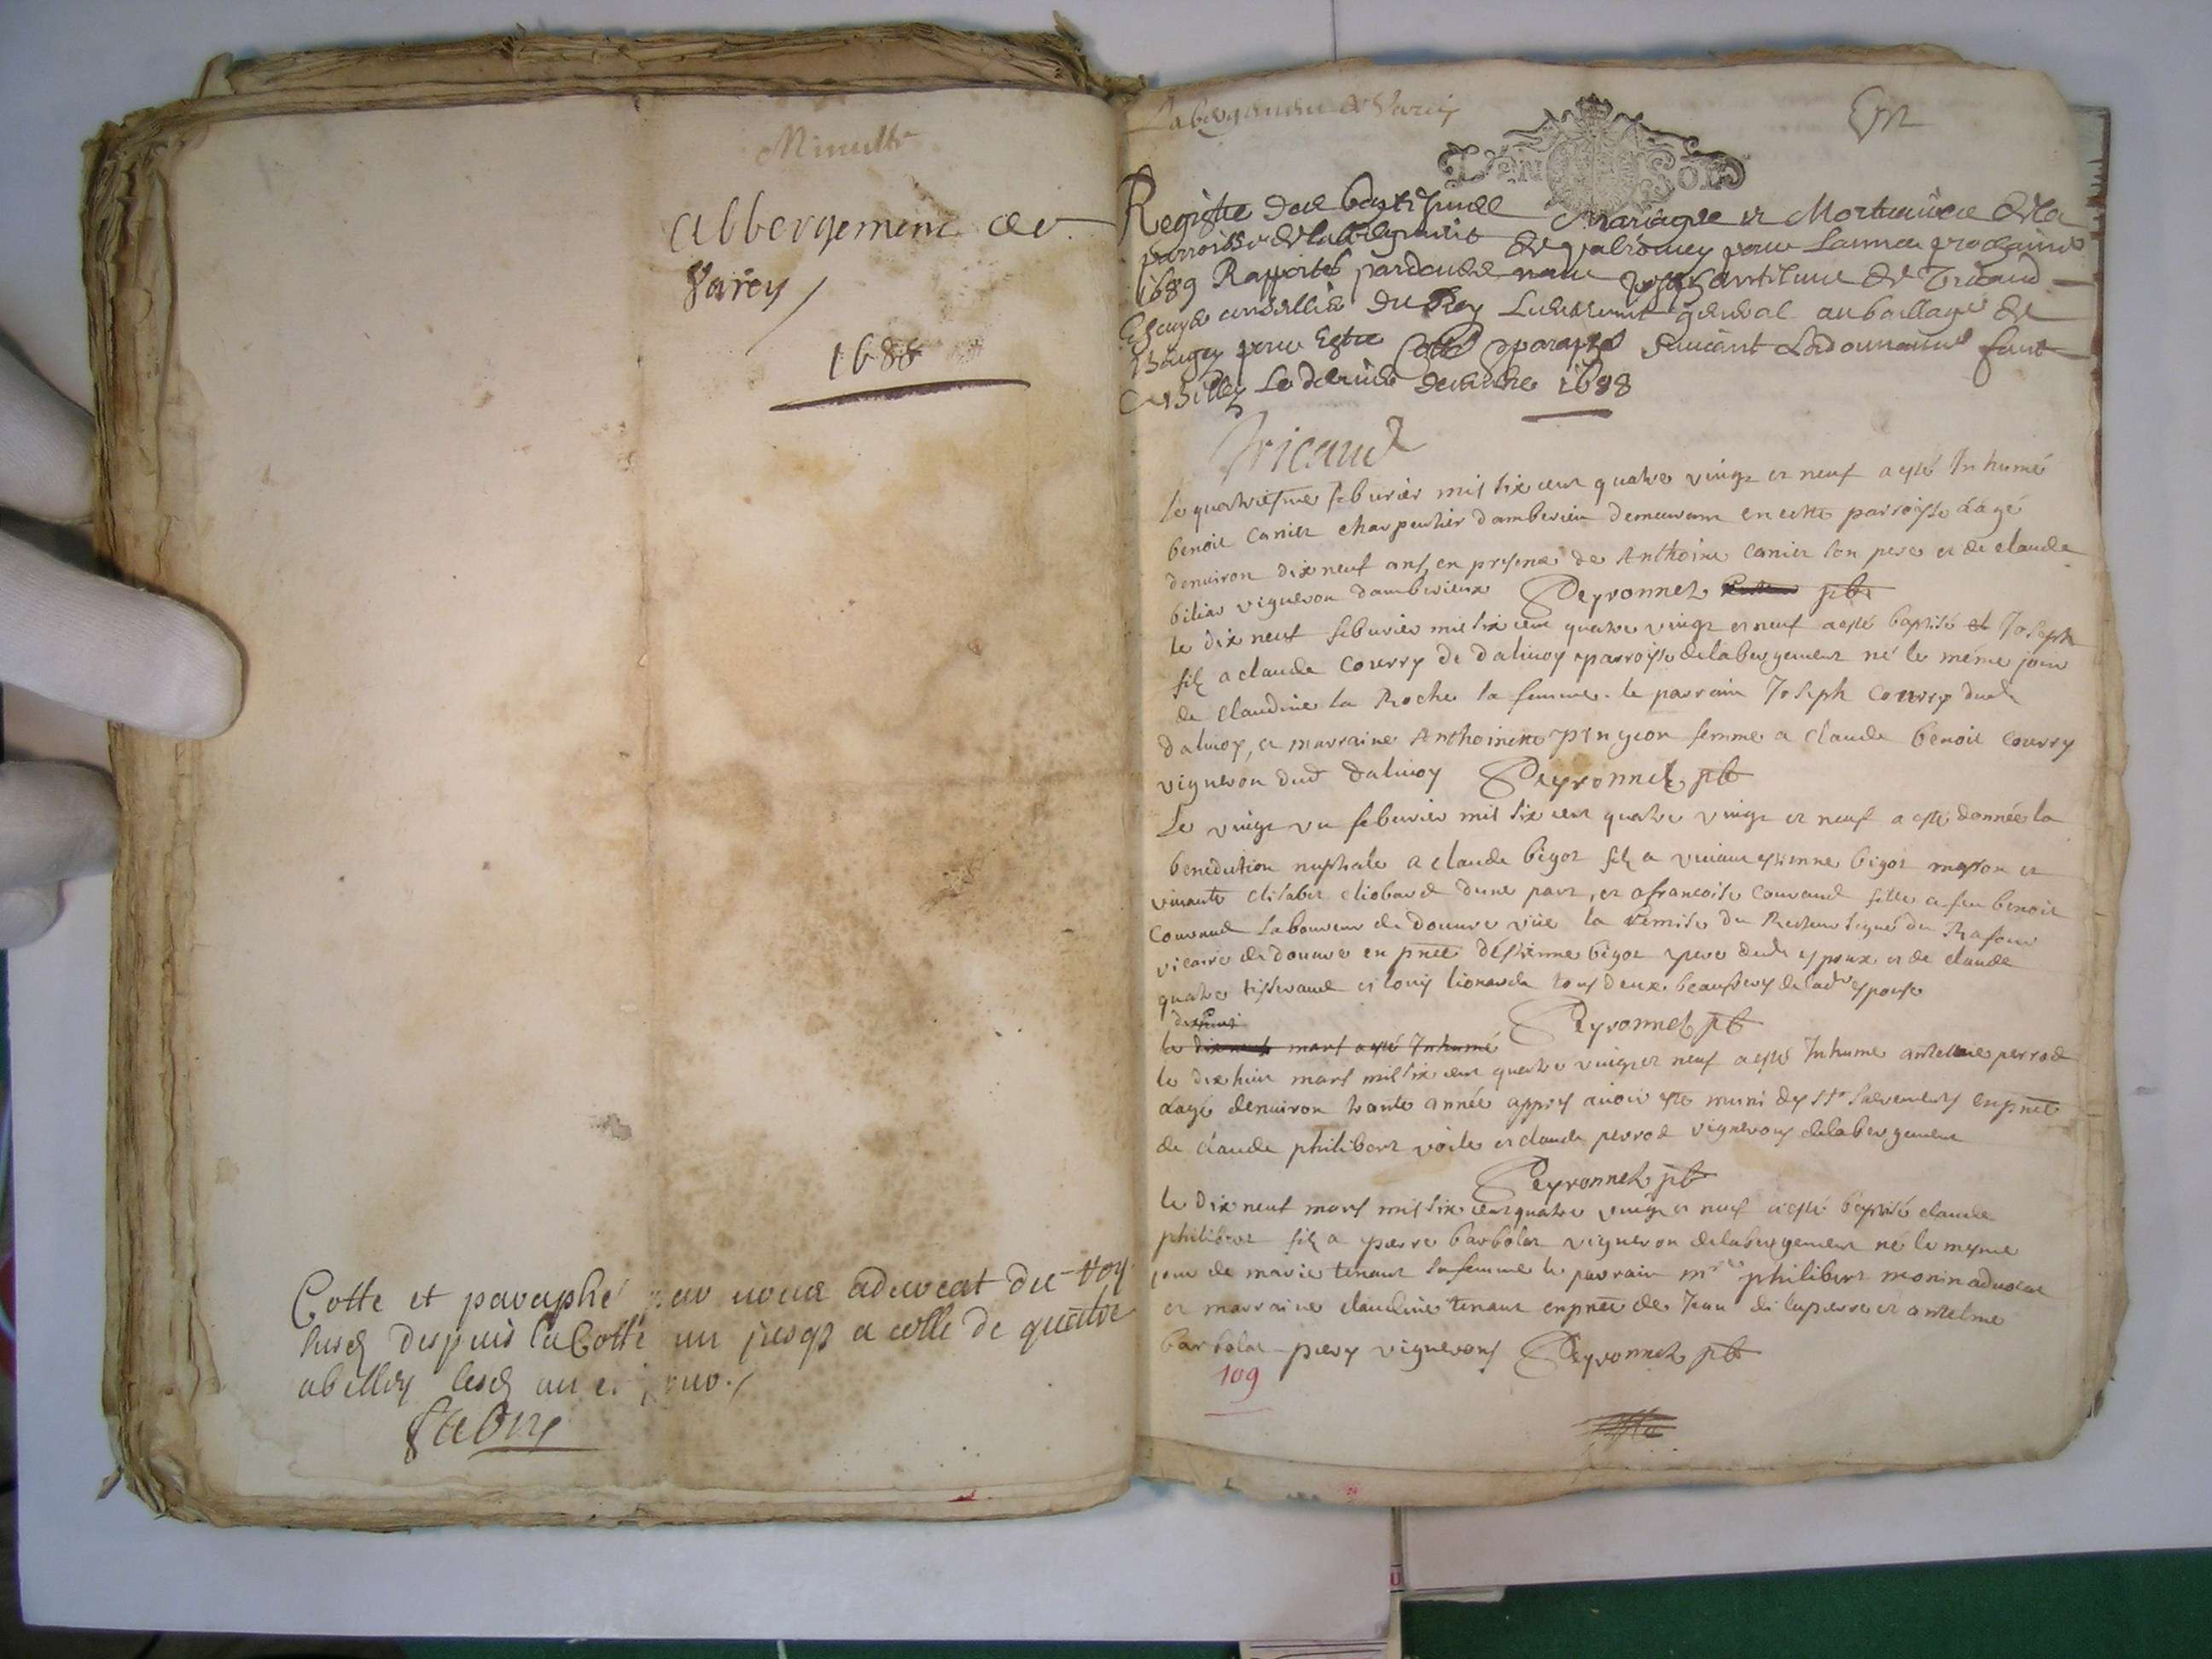 Minutte
Abbergement de
Varey
1688
Cotte et paraphé par nous advocat du roy
susd despuis la Cotte un jusqs a celle de quattre
a billey lesd an et jour
Labergement de Varey
Un
Registre des baptisme Mariages et Mortuaires de la
parroisse de pour lannee prochaine
1689 Rapportés pardevant nous Joseph de Tricaud
Escuyer conseillier du Roy Lieutenant general au baillage de
Bugey pour Estre cotté paraphé suivant Lordonnance faict
a Billey Le dernier decembre 1688
Tricaud
le quatriesme feburier mil six cent quatre vingt et neuf a esté Inhumé
benoit Canier charpentier damberieu demeurant en cette parroisse aagé
denuiron dix neuf ans, en presence de Anthoine Canier son pere et de claude
bilias vigneron damberieux Peyronnet pbr
le dix neuf feburier mil six cent quatre vingt et neuf a esté baptisé Joseph
filz a claude Courry de Daliuoy parroisse delabergement né le méme jour
de Claudine la Roche sa femme. le parrain Joseph Courry dud
Daliuoy, et marraine Anthoinette pingeon femme a claude benoit Courry
vigneron dud Daliuoy Peyronnet pbr
Le vingt un feburier mil six cent quatre vingt et neuf a esté donnée la
benediction nuptiale a claude bigot filz a viuant estienne bigot et
viuante Elisabet d'une part, et a francoise Couvand fille a feu benoit
Couvand laboureur de Douure vüe la Remise du Recteur signé du Rafour
vicaire de Douure en pnce d'Estienne bigot pere dud espoux et de claude
quatre tisserand et Louis lionarde tous deux beaufreres de lad espouse
dix huit Peyronnet pbr
le dix neuf mars a esté Inhumé
le dix huit mars mil six cent quatre vingt et neuf a esté Inhume antelme perrod
aagé denuiron trante année appres auoir esté muni des Sts Sacrements en pnce
de claude philibert voile et claude perrod vignerons delabergement
Peyronnet pbr
le dix neuf mars mil six cent quatre vingt et neuf a esté baptisé claude
philibert filz a pierre barbolat vigneron delabergement né le mesme
jour de marie tenant sa femme le parrain mre philibert monin aduocat
et marraine claudine tenant en pnce de Jean de lapierre et antelme
barbolat vignerons Peyronnet pbr
109